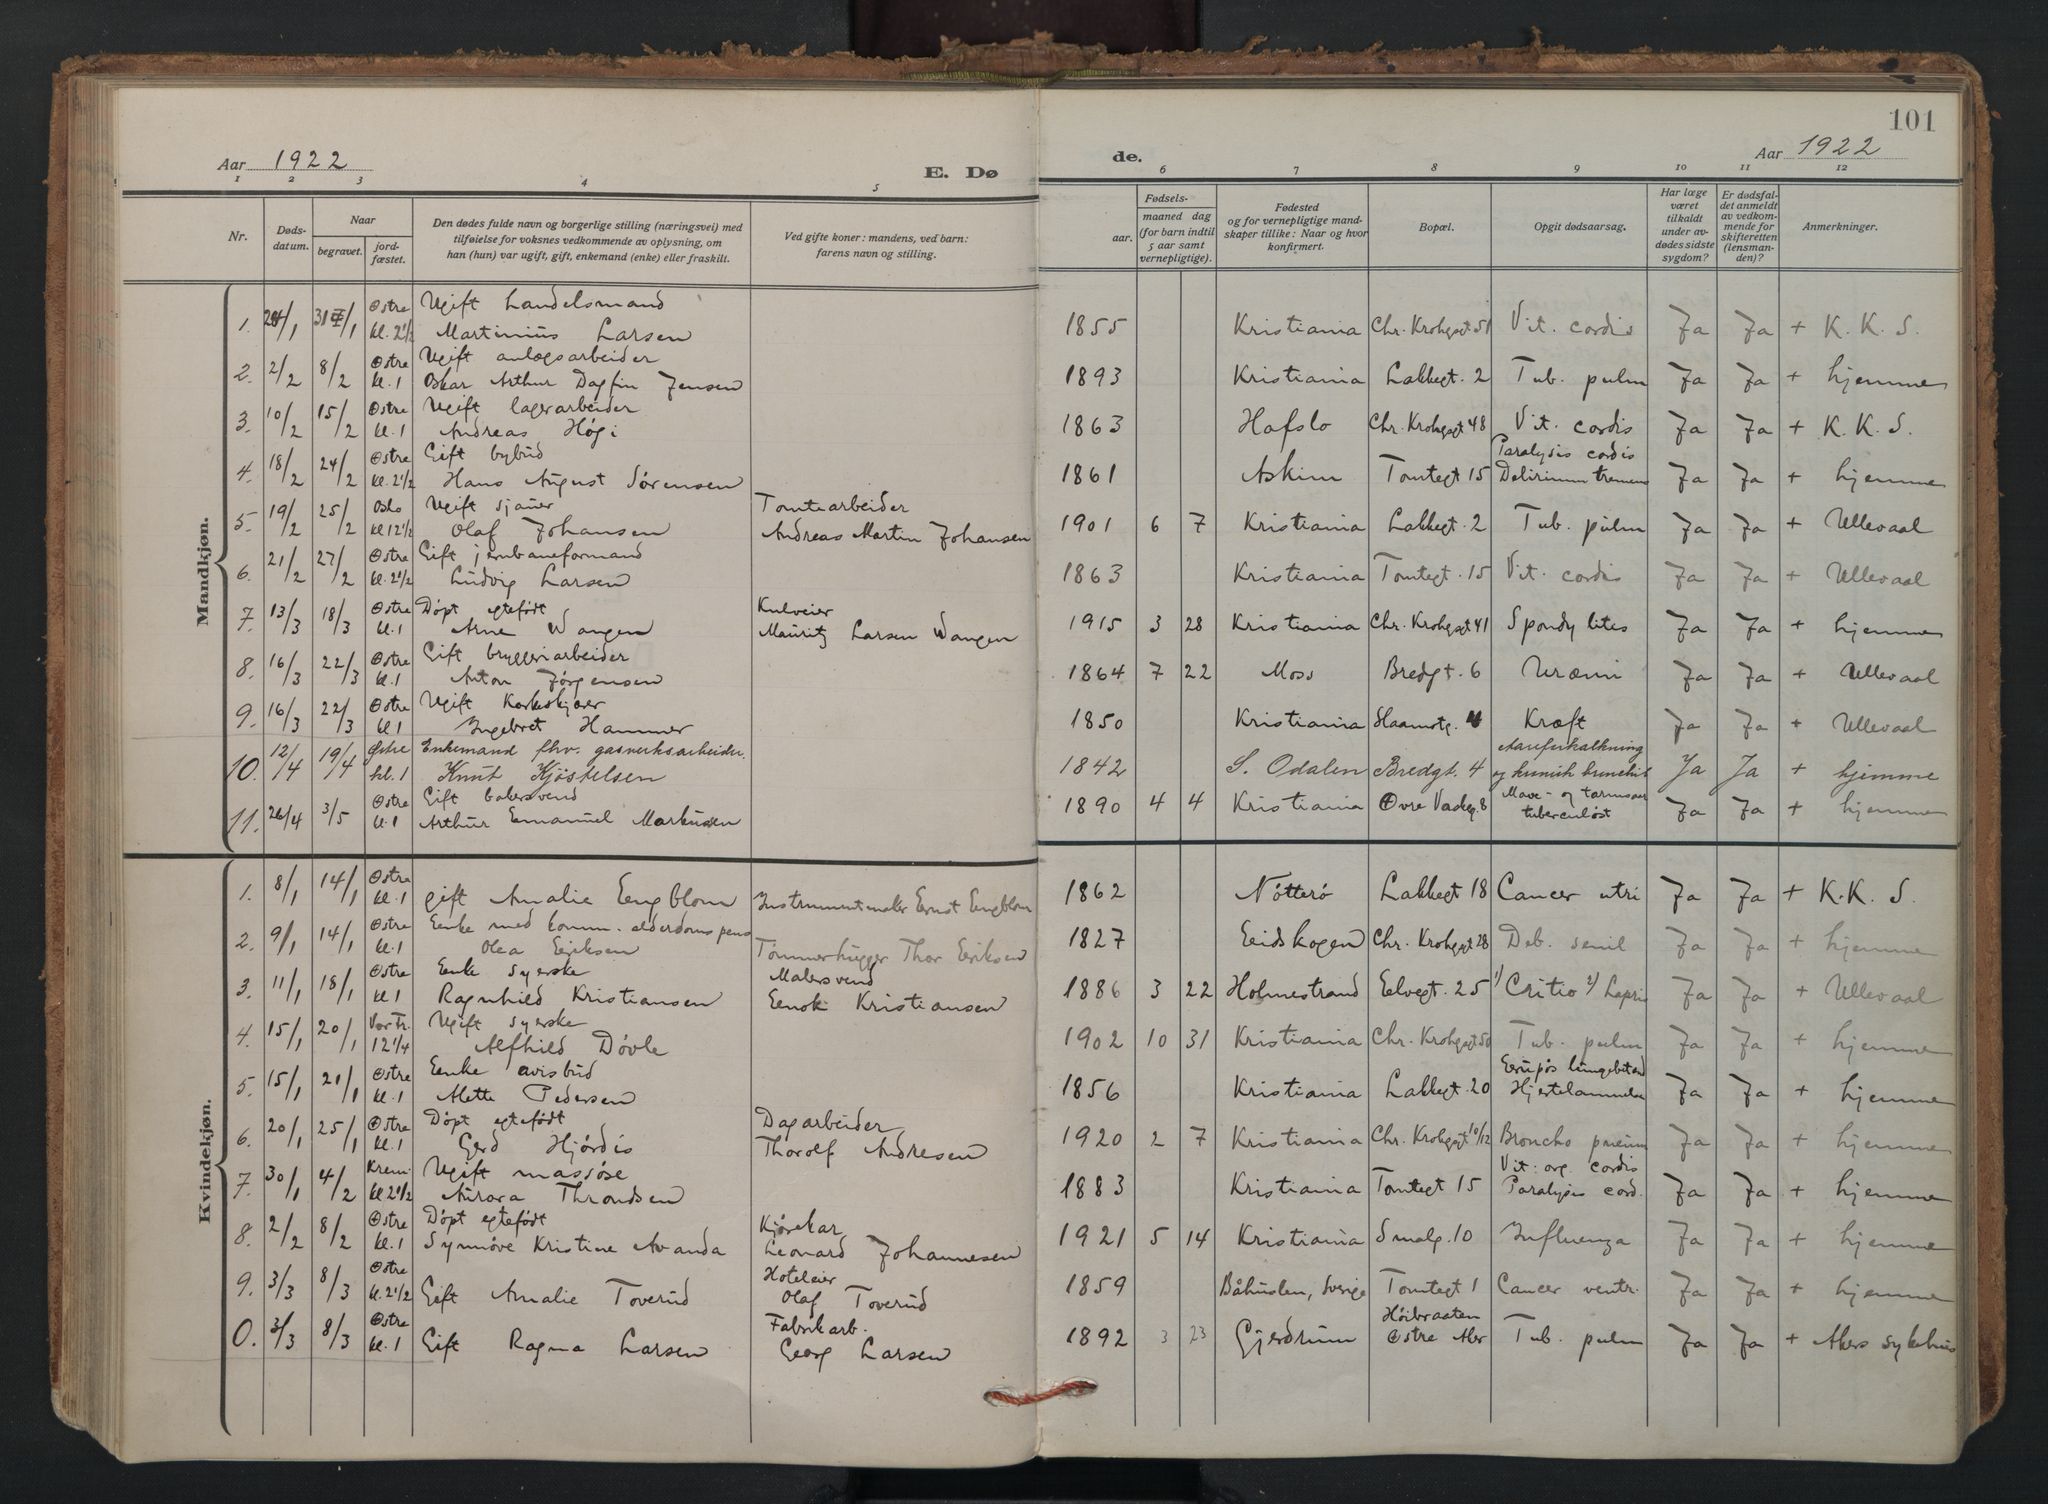 101
Aar 1922
E. Dø
de.
Aar 1922
1 2 3 4 5 6 7 8 9 10 11 12
Nr.
Døds-
datum.
Naar
begravet.
jord-
fæstet.
Den dødes fulde navn og borgerlige stilling (næringsvei) med
tilføielse for voksnes vedkommende av oplysning, om
han (hun) var ugift, gift, enkemand (enke) eller fraskilt.
Ved gifte koner: mandens, ved barn:
farens navn og stilling.
Fødsels-
aar.
maaned dag
(for barn indtil
5 aar samt
vernepligtige).
Fødested
og for vernepligtige mand-
skaper tillike: Naar og hvor
konfirmert.
Bopæl.
Opgit dødsaarsag.
Har læge
været
tilkaldt
under av-
dødes sidste
sygdom?
Er dødsfal-
det anmeldt
av vedkom-
mende for
skifteretten
(lensman-
den)?
Anmerkninger.
Mandkjøn.
Østre Ugift handelsmand
1. 24/1 31/1 kl. 2 1/2 Martinius Larsen 1855 Kristiania Chr. Krohgsgt 51 Vit. cordis Ja Ja + K. K. S.
Østre Ugift anlægsarbeider
2. 2/2 8/2 kl. 1 Oskar Arthur Dagfin Jensen 1893 Kristiania Lakkegt. 2 Tub. pulm Ja Ja + hjemme
Østre Ugift lagerarbeider
3. 10/2 15/2 kl. 1 Andreas Høgi 1863 Hafslo Chr. Krohgsgt 48 Vit. cordis Ja Ja + K. K. S.
Østre Gift bybud Paralysis cordis
4. 18/2 24/2 kl. 2 1/2 Hans August Sørensen 1861 Askim Tomtegt 15 Delirium tremens Ja Ja + hjemme
Oslo Ugift sjauer Tomtearbeider
5. 19/2 25/2 kl 12 1/2 Olaf Johansen Andreas Martin Johansen 1901 6 7 Kristiania Lakkegt. 2 Tub. pulm Ja Ja + Ullevaal
Østre Gift jernbaneformand
6. 21/2 27/2 kl. 2 1/2 Ludvig Larsen 1863 Kristiania Tomtegt. 15 Vit. cordis Ja Ja + Ullevaal
Østre Døpt egtefødt Kulveier
7. 13/3 18/3 kl. 1 Arne Wangen Mauritz Larsen Wangen 1915 3 28 Kristiania Chr. Krohgsgt 41 Spondylites Ja Ja + hjemme
Østre Gift bryggeriarbeider
8. 16/3 22/3 kl. 1 Anton Jørgensen 1864 7 22 Moss Bredgt. 6 Uræmi Ja Ja + Ullevaal
Østre Ugift Korkskjærer
9. 16/3 22/3 kl 1 Ingebret Hammer 1850 Kristiania Kræft Ja Ja + Ullevaal
Østre Enkemand fhv. gasverksarbeider. Aareforkalkning
10. 12/4 19/4 kl. 1 Knut Kjøstelsen 1842 S. Odalen Bredgt. 4 og kronisk bronchit Ja Ja + hjemme
Østre Gift bakersvend Mave- og tarmsaar
11. 26/4 3/5 kl. 1 Arthur Emanuel Markussen 1890 4 4 Kristiania Øvre Vaskeg. 8 tuberculøst Ja Ja + hjemme
Kvindekjøn.
Østre
1. 8/1 14/1 kl. 1 gift Amalie Engblom Instrumentmaker Ernst Engblom 1862 Nøtterø Lakkegt 18 Cancer utri Ja Ja + K. K. S.
Østre Enke med komm. alderdoms pens
2. 9/1 14/1 kl. 1 Olea Eriksen Tømmerhugger Thor Eriksen 1827 Eidskogen Chr. Krohgsgt 28 Deb. senil Ja Ja + hjemme
Østre Enke syerske Malersvend
3. 11/1 18/1 kl 1 Ragnhild Kristiansen Kristiansen 1886 3 22 Holmestrand Elvegt. 25 Ja Ja + Ullevaal
Vor Fr. Ugift syerske
4. 15/1 20/1 12 1/4 Alfhild Døvle 1902 10 31 Kristiania Chr. Krohgsgt 50 Tub. pulm Ja Ja + hjemme
Østre Enke avisbud
5. 15/1 21/1 kl. 1 Mette Pedersen 1856 Kristiania Lakkegt. 20 Hjertelammelse Ja Ja + hjemme
Østre Døpt egtefødt Dagarbeider
6. 20/1 25/1 kl. 1 Gerd Hjørdis Thorolf Andresen 1920 2 7 Kristiania Chr. Krohgsgt 10/12 Broncho pneum Ja Ja + hjemme
Krem. Ugift massøse Vit: org. cordis
7. 30/1 4/2 kl 2 1/2 Aurora Throndsen 1883 Kristiania Tomtegt 15 Paralysis cord. Ja Ja + hjemme
Østre Døpt egtefødt Kjørekar
8. 2/2 8/2 kl. 1 Synnøve Kristine Avanda Leonard Johannesen 1921 5 14 Kristiania Smalg. 10 Influenza Ja Ja + hjemme
Østre Hoteleier
9. 3/3 8/3 kl. 2 1/2 Gift Amalie Toverud Olaf Toverud 1859 Båhuslen, Sverige Tomtegt 1 Cancer ventr. Ja Ja + hjemme
Østre Fabrikarb. Høibraaten
0. 3/3 8/3 kl. 1 Gift Ragna Larsen Georg Larsen 1892 3 23 Gjerdrum Østre Aker Tub. pulm Ja Ja + Akers sykehus